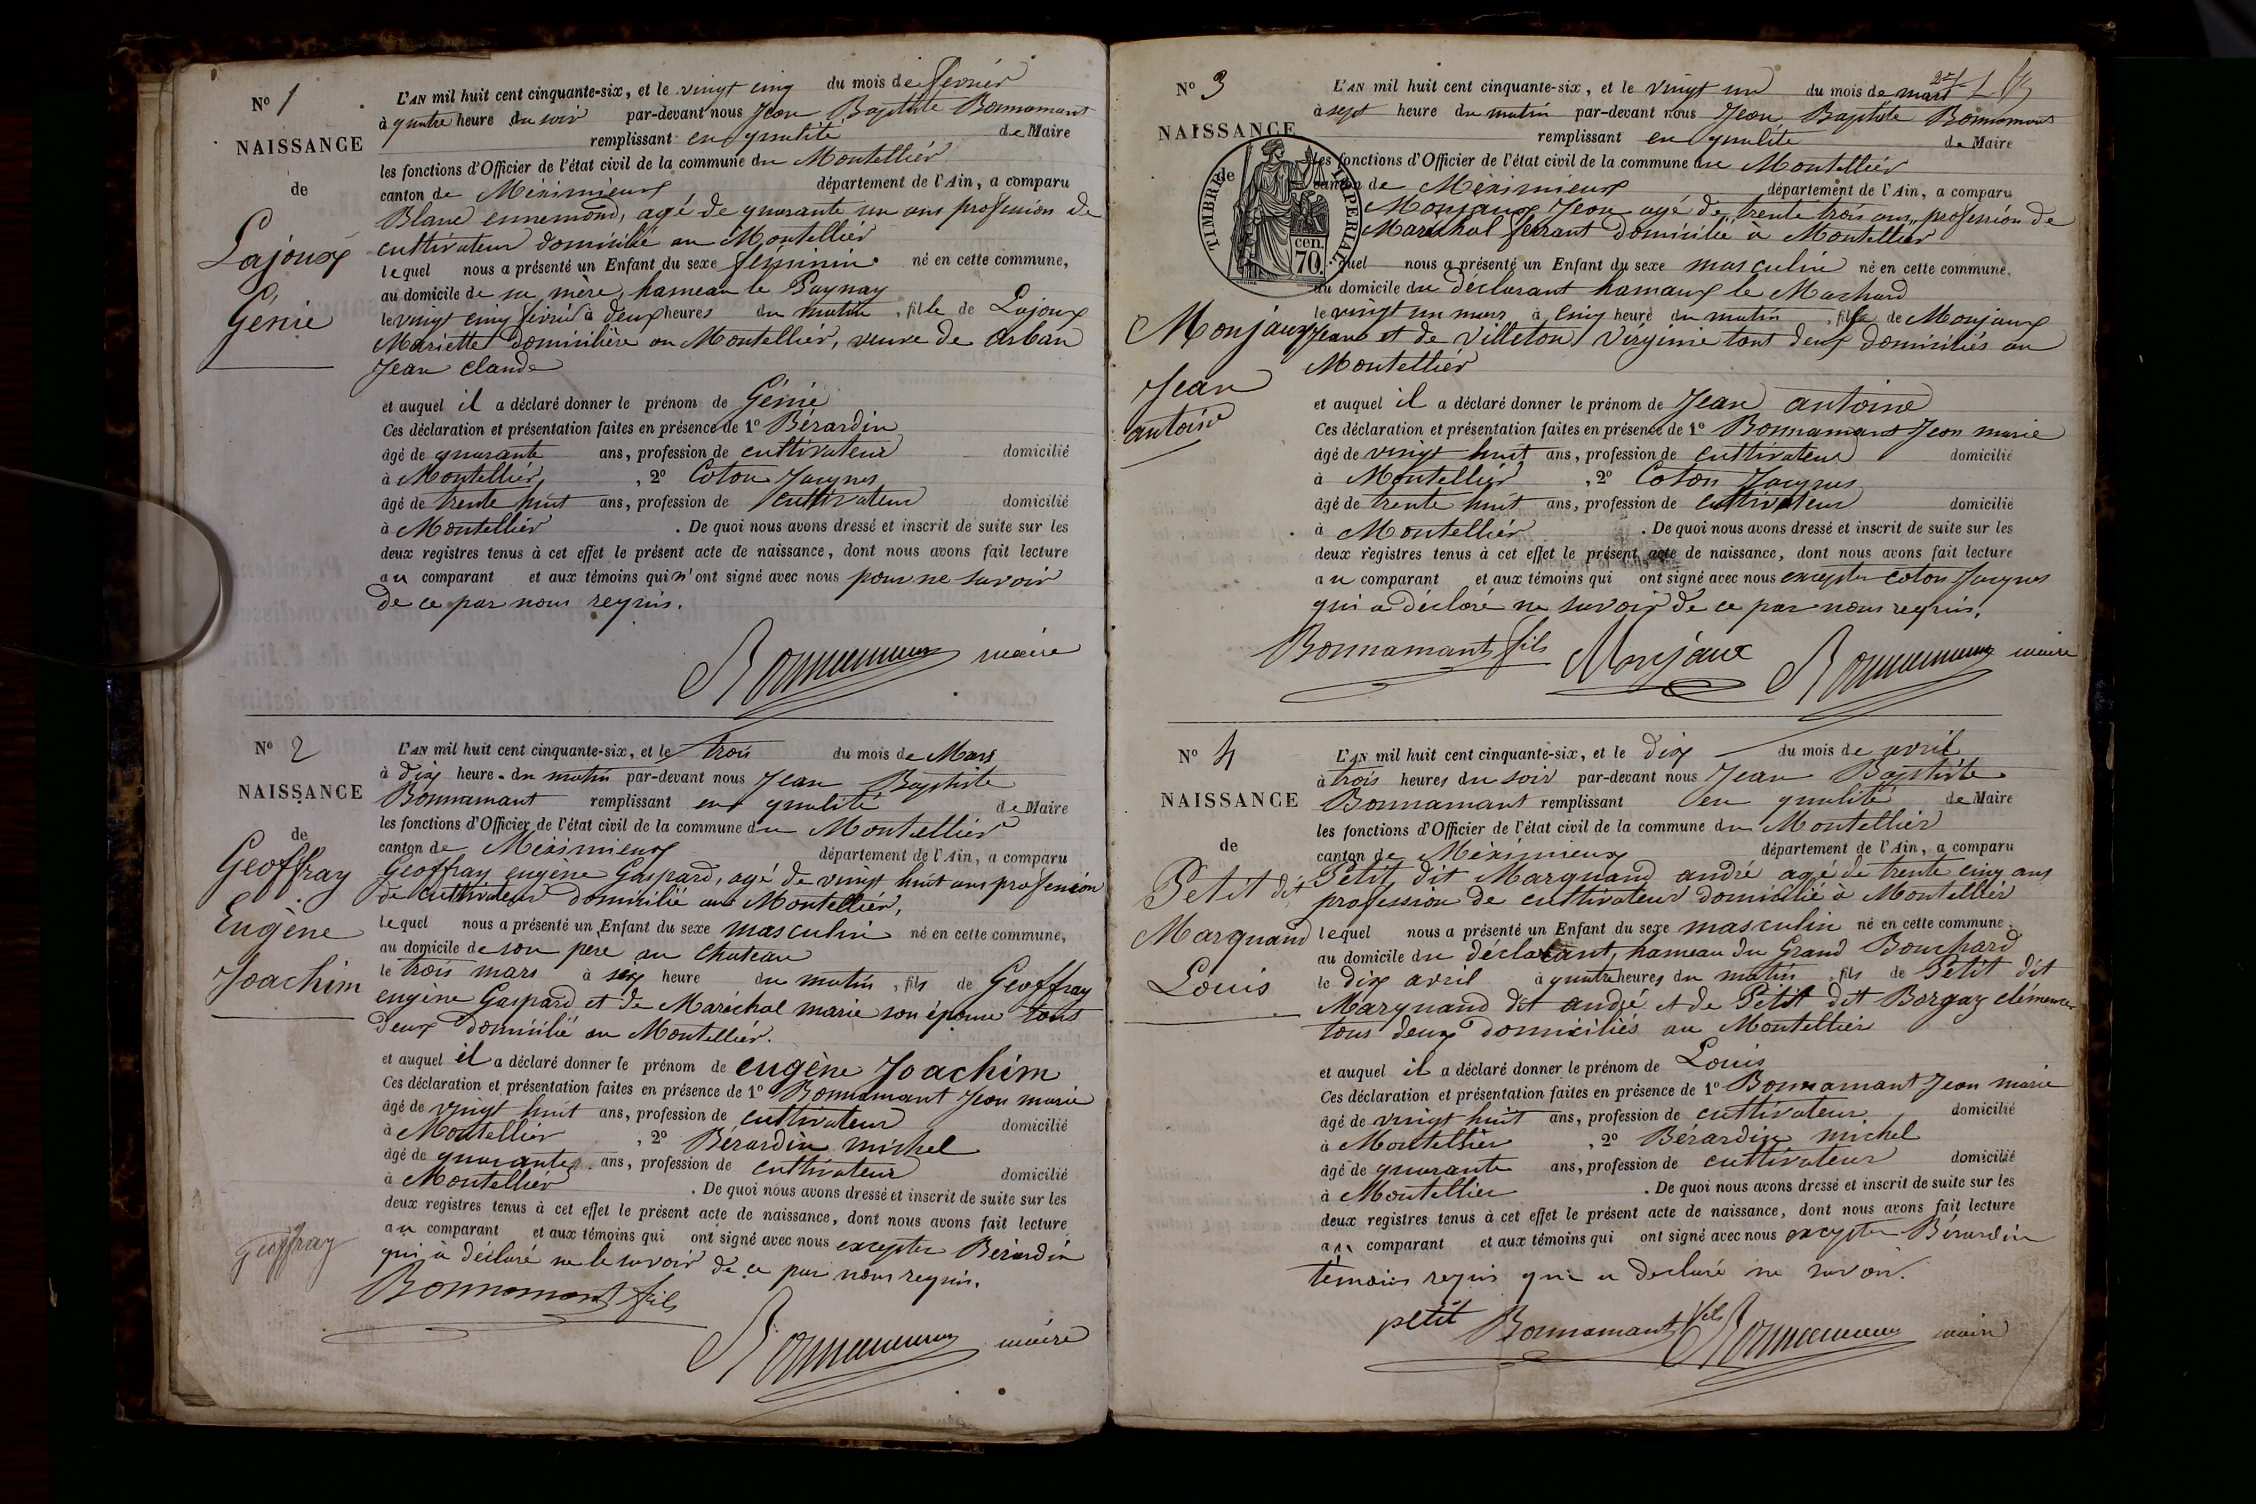 Nº 1
NAISSANCE
de
Lajoux
Génie
L'AN mil huit cent cinquante-six, et le vingt cinq du mois de fevrier
à quatre heure du soir par-devant nous Jean Baptiste Bonnamant
remplissant en qualité de Maire
les fonctions d'Officier de l'état civil de la commune du Montellier
canton de Méximieux département de l'Ain, a comparu
Blanc ennemond, agé de quarante un ans profession de
cultivateur domicilié au Montellier
lequel nous a présenté un Enfant du sexe féminin né en cette commune,
au domicile de sa mère, hameau le
le vingt cinq fevrier à deux heures du matin, fille de Lajoux
Mariette domicilière au Montellier, veuve de Arban
Jean claude
et auquel il a déclaré donner le prénom de Génie
Ces déclaration et présentation faites en présence de 1º Bérardin
âgé de quarante ans, profession de cultivateur domicilié
à Montellier, 2º Coton Jacques
âgé de trente huit ans, profession de cultivateur domicilié
à Montellier. De quoi nous avons dressé et inscrit de suite sur les
deux registres tenus à cet effet le présent acte de naissance, dont nous avons fait lecture
au comparant et aux témoins qui n'ont signé avec nous pour ne savoir
de ce par nous requis.
Bonnamant maire
Nº 2
NAISSANCE
de
Geoffray
Eugène
Joachim
L'AN mil huit cent cinquante-six, et le trois du mois de Mars
à dix heure du matin par-devant nous Jean Baptiste
Bonnamant remplissant en qualité de Maire
les fonctions d'Officier de l'état civil de la commune du Montellier
canton de Méximieux département de l'Ain, a comparu
Geoffray eugène Gaspard, agé de vingt huit ans profession
de cultivateur domicilié au Montellier,
lequel nous a présenté un Enfant du sexe masculin né en cette commune,
au domicile de son pere au chateau
le trois mars à six heure du matin, fils de Geoffray
eugène Gaspard et de Maréchal marie son épouse tous
deux domicilié au Montellier.
et auquel il a déclaré donner le prénom de eugène Joachim
Ces déclaration et présentation faites en présence de 1º Bonnamant Jean marie
âgé de vingt huit ans, profession de cultivateur domicilié
à Montellier, 2º Bérardin michel
âgé de quarante ans, profession de cultivateur domicilié
à Montellier. De quoi nous avons dressé et inscrit de suite sur les
deux registres tenus à cet effet le présent acte de naissance, dont nous avons fait lecture
au comparant et aux témoins qui ont signé avec nous excepter Bérardin
qui a déclaré ne le savoir de ce par nous requis.
geoffray
Bonnamant fils
Bonnamant maire
Nº 3
NAISSANCE
de
TIMBRE IMPERIAL
70 cen.
Monjaux
Jean
antoine
L'AN mil huit cent cinquante-six, et le vingt un du mois de mars
à sept heure du matin par-devant nous Jean Baptiste Bonnamant
remplissant en qualité de Maire
les fonctions d'Officier de l'état civil de la commune du Montellier
canton de Méximieux département de l'Ain, a comparu
Monjaux Jean agé de trente trois ans, profession de
Maréchal ferrant domicilié à Montellier
lequel nous a présenté un Enfant du sexe masculin né en cette commune,
au domicile du déclarant hamaux le Machard
le vingt un mars à cinq heure du matin, fils de Monjaux
Jean et de Villeton Virginie tout deux domiciliés au
Montellier
et auquel il a déclaré donner le prénom de Jean antoine
Ces déclaration et présentation faites en présence de 1º Bonnamant Jean marie
âgé de vingt huit ans, profession de cultivateur domicilié
à Montellier, 2º Coton Jacques
âgé de trente huit ans, profession de cultivateur domicilié
à Montellier. De quoi nous avons dressé et inscrit de suite sur les
deux registres tenus à cet effet le présent acte de naissance, dont nous avons fait lecture
au comparant et aux témoins qui ont signé avec nous excepter coton Jacques
qui a déclaré ne savoir de ce par nous requis.
Bonnamant fils Monjaux Bonnamant maire
Nº 4
NAISSANCE
de
Petit dit
Marquand
Louis
L'AN mil huit cent cinquante-six, et le dix du mois de avril
à trois heures du soir par-devant nous Jean Baptiste
Bonnamant remplissant en qualité de Maire
les fonctions d'Officier de l'état civil de la commune du Montellier
canton de Méximieux département de l'Ain, a comparu
Petit dit Marquand andré agé de trente cinq ans
profession de cultivateur domicilié à Montellier
lequel nous a présenté un Enfant du sexe masculin né en cette commune,
au domicile du déclarant, hameau du Grand Bouchard
le dix avril à quatre heures du matin, fils de Petit dit
Marquand dit andré et de Petit dit Borgay clémence
tous deux domiciliés au Montellier
et auquel il a déclaré donner le prénom de Louis
Ces déclaration et présentation faites en présence de 1º Bonnamant Jean marie
âgé de vingt huit ans, profession de cultivateur, domicilié
à Montellier, 2º Bérardin michel
âgé de quarante ans, profession de cultivateur domicilié
à Montellier. De quoi nous avons dressé et inscrit de suite sur les
deux registres tenus à cet effet le présent acte de naissance, dont nous avons fait lecture
au comparant et aux témoins qui ont signé avec nous excepter Bérardin
témoins requis qui a declaré ne savoir.
petit Bonnamant fils Bonnamant maire